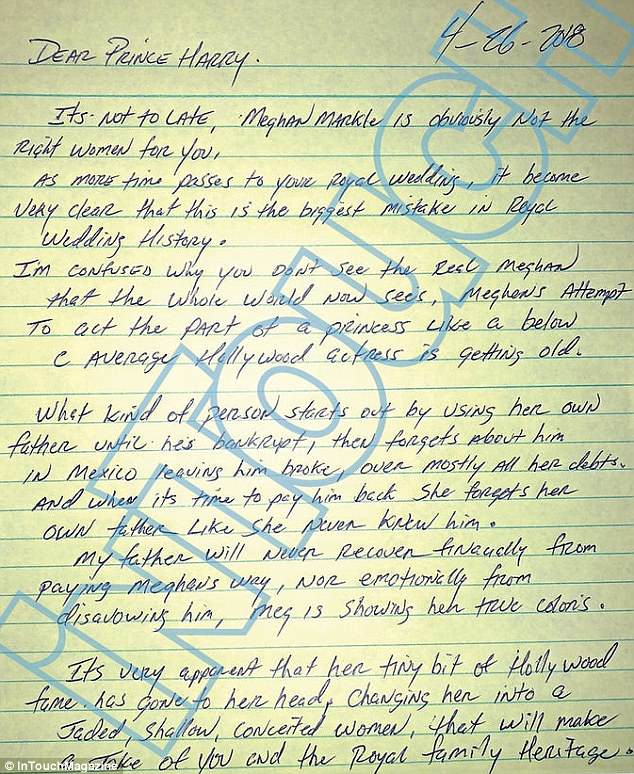 4-26-2018
DEAR PRINCE HARRY.
Its. NOT TO LATE, MEGHAN MARKLE is obviously NOT the
Right women for you,
AS MORE time passes to your Royal Wedding, it become
very clear that this is the biggest mistake in Royal
Wedding History.
I'm confused why you DON't See the Real Meghan
that the whole world Now sees, Meghan's Attempt
To act the PART of a princess Like a below
C AVERAGE Hollywood actress is getting old.
What kind of person starts out by using her own
father until he's bankrupt, then forgets About him
IN Mexico leaving him broke, over mostly All her debts.
AND when its time to pay him back She forgets her
OWN father Like She Never KNEW him.
My father will Never Recover finacially from
paying Meghans way, NOR emotionally from
disavowing him, Meg is Showing her true colors.
It's very apparent that her tiny bit of Hollywood
fame has gone to her head, Changing her into a
Jaded Shallow, conceited women, that will make
a Joke of you and the Royal Family Heritage.
INTOUCH
© InTouchMagazine